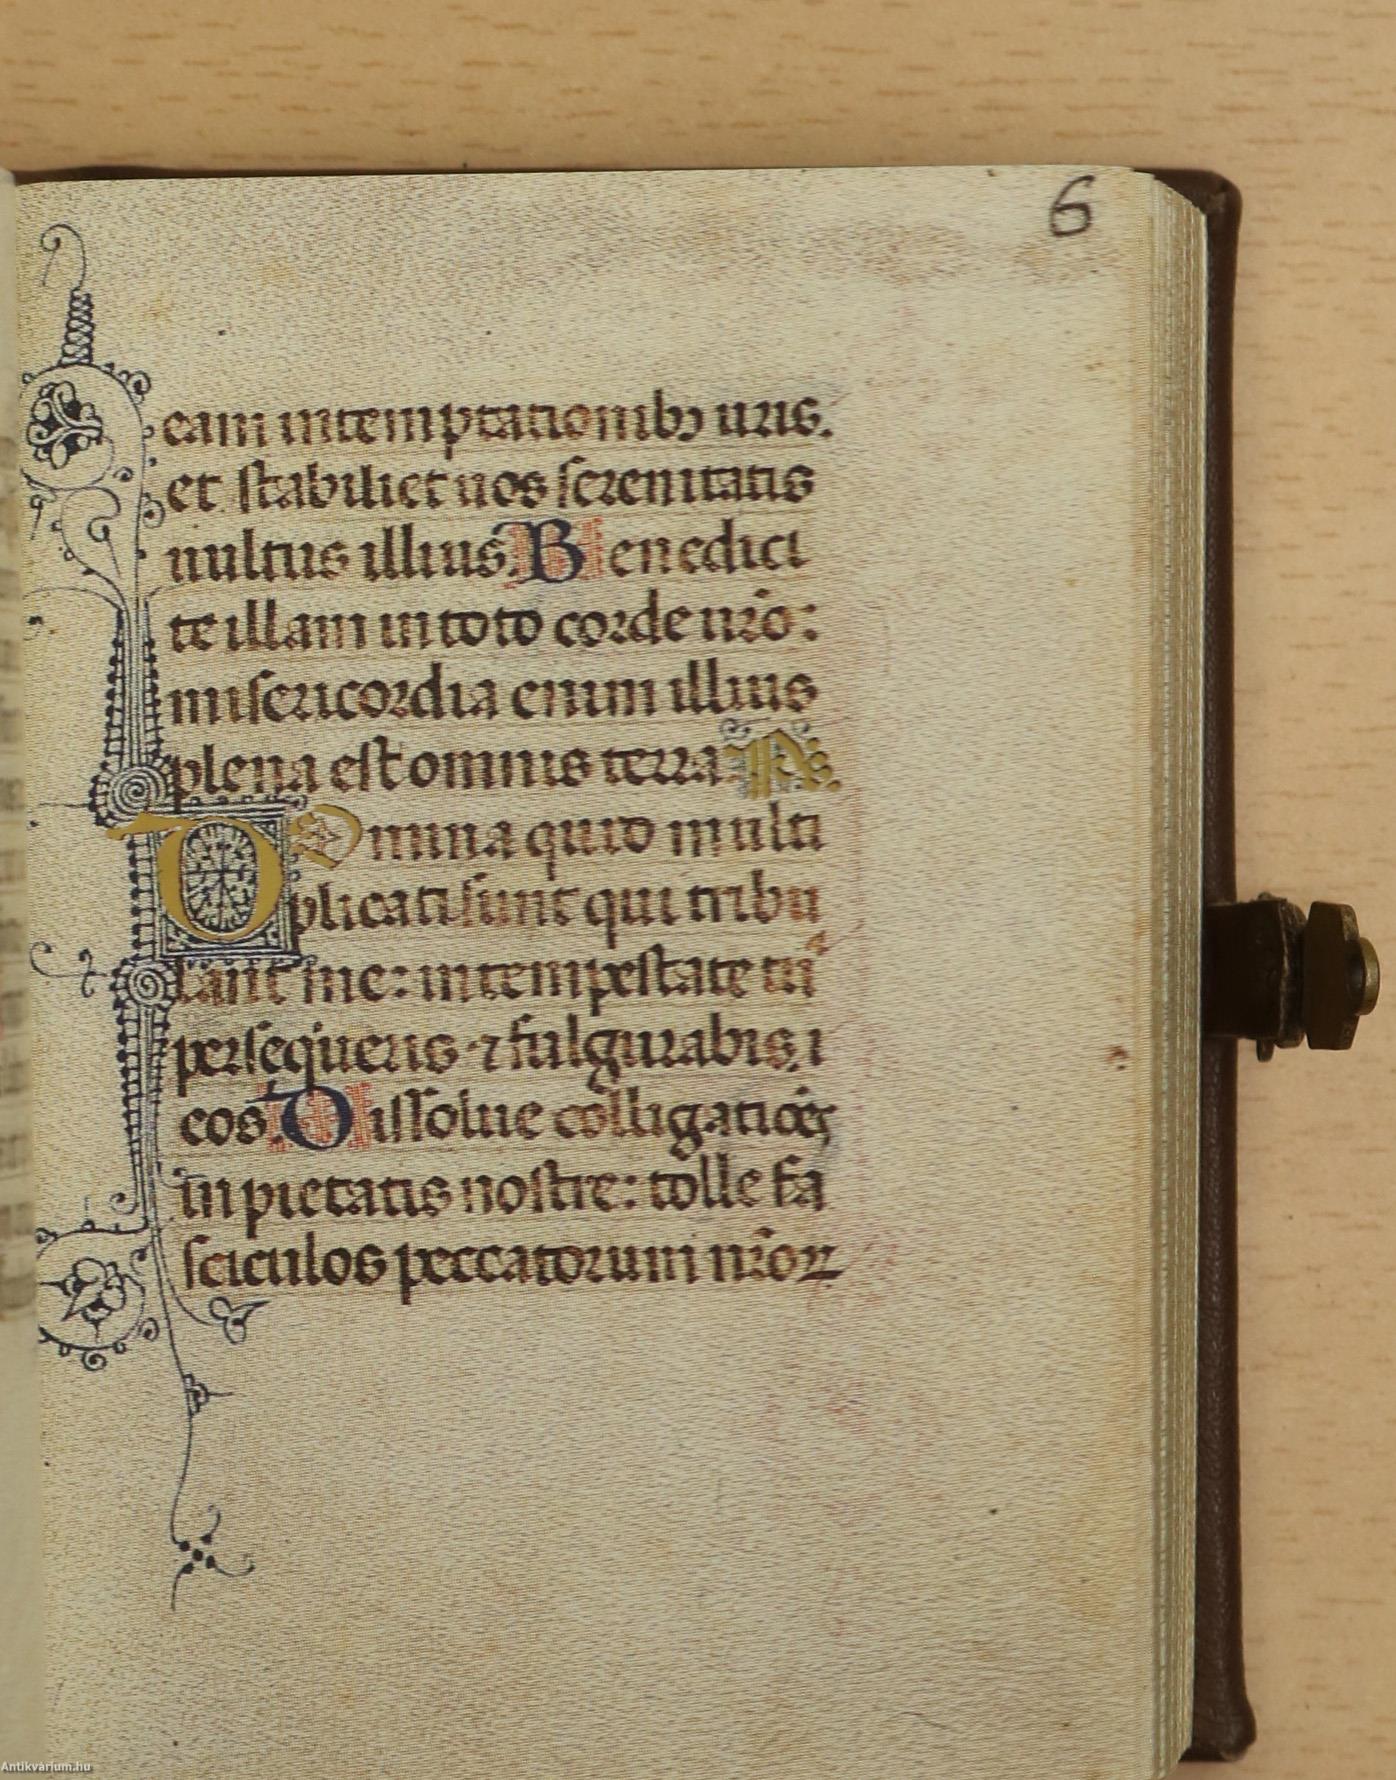 6
eam in temptationibꝫ uris.
et stabiliet uos serenitatis
uultus illius. Benedici
te illam in toto corde nr̄o:
misericordia enim illius
plena est omnis terra
Domina quid multi
plicati sunt qui tribu
lant me: in tempestate tu
persequeris ⁊ fulgurabis. i
eos. Dissolue colligatiōes
inpietatis nostre: tolle fa
sciculos peccatorum nr̄oꝝ
Antikvarium.hu